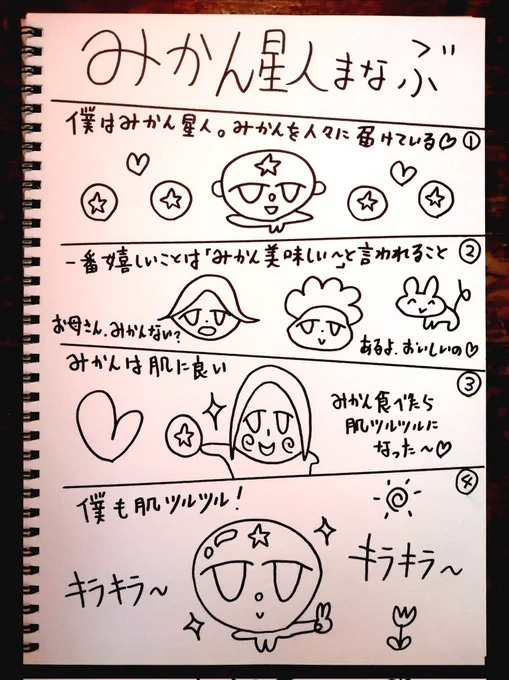 みかん星人まなぶ
僕はみかん星人。みかんを人々に届けている♡ ①
一番嬉しいことは「みかん美味しい〜」と言われること ②
お母さん、みかんない?
あるよ、おいしいの♡
みかんは肌に良い
③
みかん食べたら
肌ツルツルに
なった〜♡
④
僕も肌ツルツル!
キラキラ〜
キラキラ〜